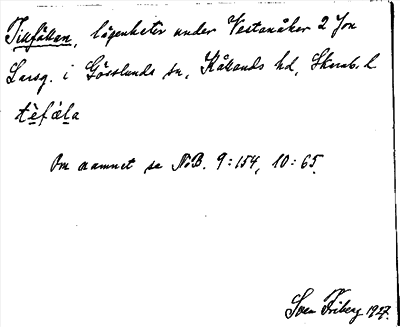 Tillfällan, lägenheter under Vestanåker 2 Jon
Larsg. i Gösslunda sn, Kållands hd, Skarab. l
tèfäla
Om namnet se NoB. 9:154, 10:65.
Sven Friberg 1927.